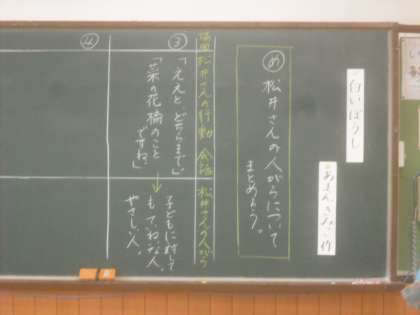 白いぼうし
あまんきみこ 作
め 松井さんの人がらについて
まとめよう。
場面 松井さんの行動 会話 松井さんの人がら
③ 「ええと、どちらまで」
「菜の花橋のこと
ですね。」
子どもに対して
もていねいな人。
やさしい人。
④